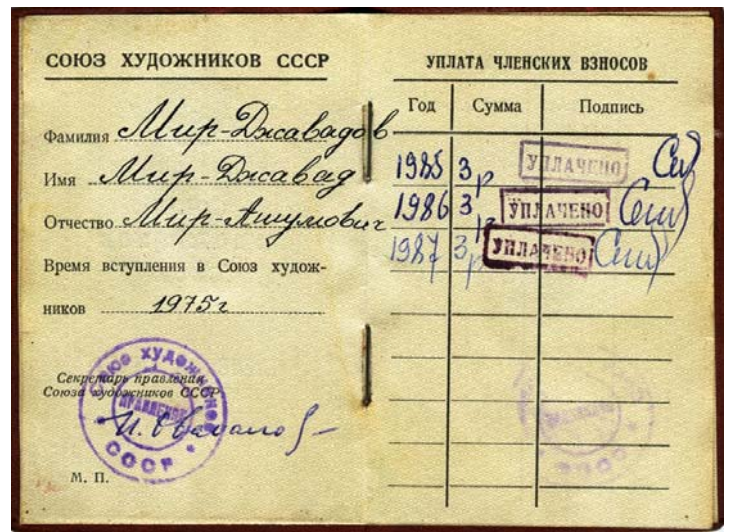 СОЮЗ ХУДОЖНИКОВ СССР
Фамилия Мир-Джавадов
Имя Мир-Джавад
Отчество Мир-Ашумович
Время вступления в Союз худож-
ников 1975г
Секретарь правления
Союза художников СССР
СОЮЗ ХУДОЖНИКОВ
ПРАВЛЕНИЕ
СССР
М. П.
УПЛАТА ЧЛЕНСКИХ ВЗНОСОВ
Год Сумма Подпись
1985 3р УПЛАЧЕНО
1986 3р УПЛАЧЕНО
1987 3р УПЛАЧЕНО